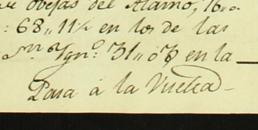 ovejas del Alamo, 16,,0
: 68,,11½ en los de las
Ygn.º 31,,03 en la
Pasa á la Vuelta